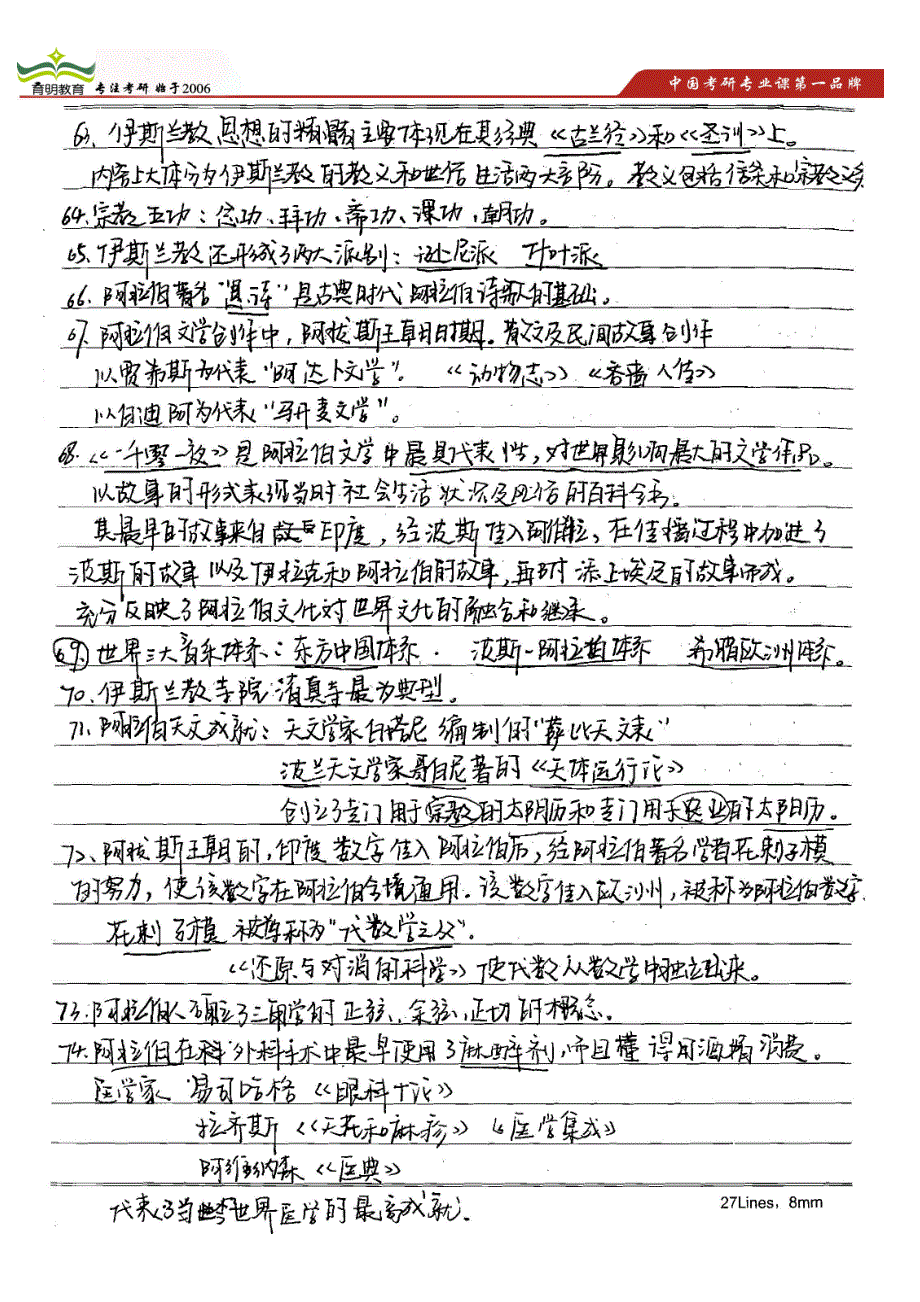 育明教育 专注考研 始于2006
中国考研专业课第一品牌
63. 伊斯兰教思想的精髓主要体现在其经典《古兰经》和《圣训》上。
内容上大体分为伊斯兰教的教义和世俗生活两大部分。教义包括信条和宗教义务
64. 宗教五功：念功、拜功、斋功、课功、朝功。
65. 伊斯兰教还形成了两大派别：逊尼派 什叶派
66. 阿拉伯著名“悬诗”是古典时代阿拉伯诗歌的基础。
67. 阿拉伯文学创作中，阿拔斯王朝时期。散文及民间故事创作
以贾希斯为代表“阿达卜文学”. 《动物志》《吝啬人传》
以白迪阿为代表“玛卡麦文学”。
68.《一千零一夜》是阿拉伯文学中最具代表性，对世界影响最大的文学作品。
以故事的形式表现当时社会生活状况及风俗的百科全书。
其最早的故事来自 印度，经波斯传入阿拉伯，在传播过程中加进了
波斯的故事以及伊拉克和阿拉伯的故事，再时添上埃及的故事而成。
充分反映了阿拉伯文化对世界文化的融合和继承。
69. 世界三大音乐体系：东方中国体系. 波斯-阿拉伯体系 希腊欧洲体系。
70. 伊斯兰教寺院清真寺最为典型。
71. 阿拉伯天文成就：天文学家白塔尼编制的“萨比天文表”
波兰天文学家哥白尼著的《天体运行论》
创立了专门用于宗教的太阴历和专门用于农业的太阳历。
72、阿拔斯王朝时，印度数字传入阿拉伯后，经阿拉伯著名学者花剌子模
的努力，使该数字在阿拉伯全境通用。该数字传入欧洲，被称为阿拉伯数字.
花剌子模 被尊称为“代数学之父”.
《还原与对消的科学》使代数从数学中独立出来。
73. 阿拉伯人确立了三角学的正弦、余弦，正切的概念。
74. 阿拉伯在科外科手术中最早使用了麻醉剂，而且懂得用酒精消毒。
医学家 易司哈格《眼科十论》
拉齐斯《天花和麻疹》《医学集成》
阿维纳森《医典》
代表了当时世界医学的最高成就.
27Lines，8mm